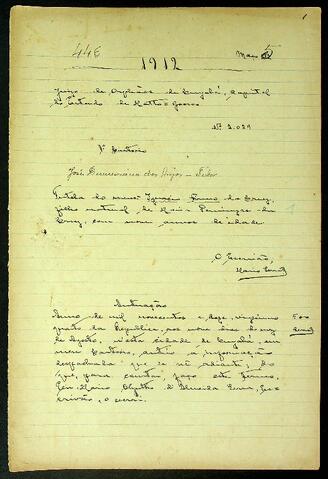 446
1912
Juizo de Orphãos de Cuyabá, Capital
do Estado de Matto-Grosso
Nº 2.029
1º Cartorio
José
dos Anjos – Tutor
Tutela do menor Ignacio da Cruz,
filho natural de Maria da
Cruz, com nove annos de idade.
O Escrivão,
Autuação
Anno de mil novecentos e doze, vigesimo
quarto da Republica, aos nove dias do mez
de Agosto, nesta cidade de Cuyabá, em
meu Cartorio, autúo a informação
despachada que se vê adiante; do
que, para constar, faço este termo.
Eu, Mario d'Almeida
crivão, o escrevi.